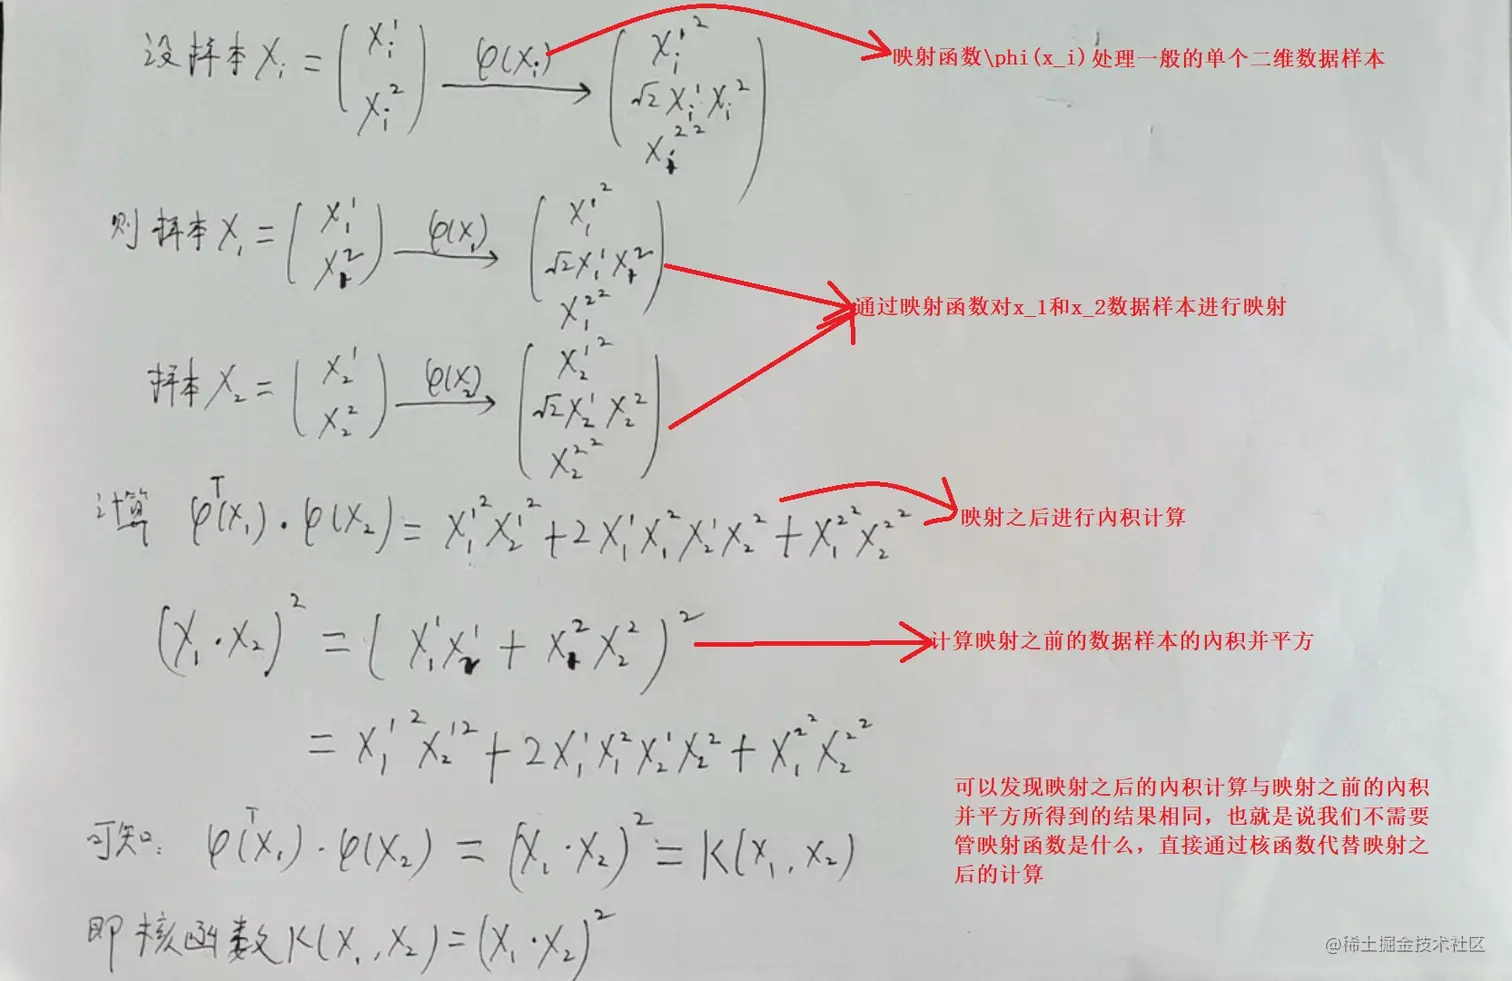 设样本 Xᵢ = (Xᵢ¹ Xᵢ²) φ(Xᵢ) → (Xᵢ¹² √2Xᵢ¹Xᵢ² Xᵢ²²)
映射函数\phi(x_i)处理一般的单个二维数据样本
则 样本 X₁ = (X₁¹ X₁²) φ(X₁) → (X₁¹² √2X₁¹X₁² X₁²²)
通过映射函数对x_1和x_2数据样本进行映射
样本 X₂ = (X₂¹ X₂²) φ(X₂) → (X₂¹² √2X₂¹X₂² X₂²²)
计算 φᵀ(X₁)·φ(X₂) = X₁¹²X₂¹² + 2X₁¹X₁²X₂¹X₂² + X₁²²X₂²²
映射之后进行内积计算
(X₁·X₂)² = (X₁¹X₂¹ + X₁²X₂²)²
计算映射之前的数据样本的内积并平方
= X₁¹²X₂¹² + 2X₁¹X₁²X₂¹X₂² + X₁²²X₂²²
可以发现映射之后的内积计算与映射之前的内积
并平方所得到的结果相同，也就是说我们不需要
管映射函数是什么，直接通过核函数代替映射之
后的计算
可知: φᵀ(X₁)·φ(X₂) = (X₁·X₂)² = K(X₁,X₂)
即 核函数 K(X₁,X₂) = (X₁·X₂)²
@稀土掘金技术社区